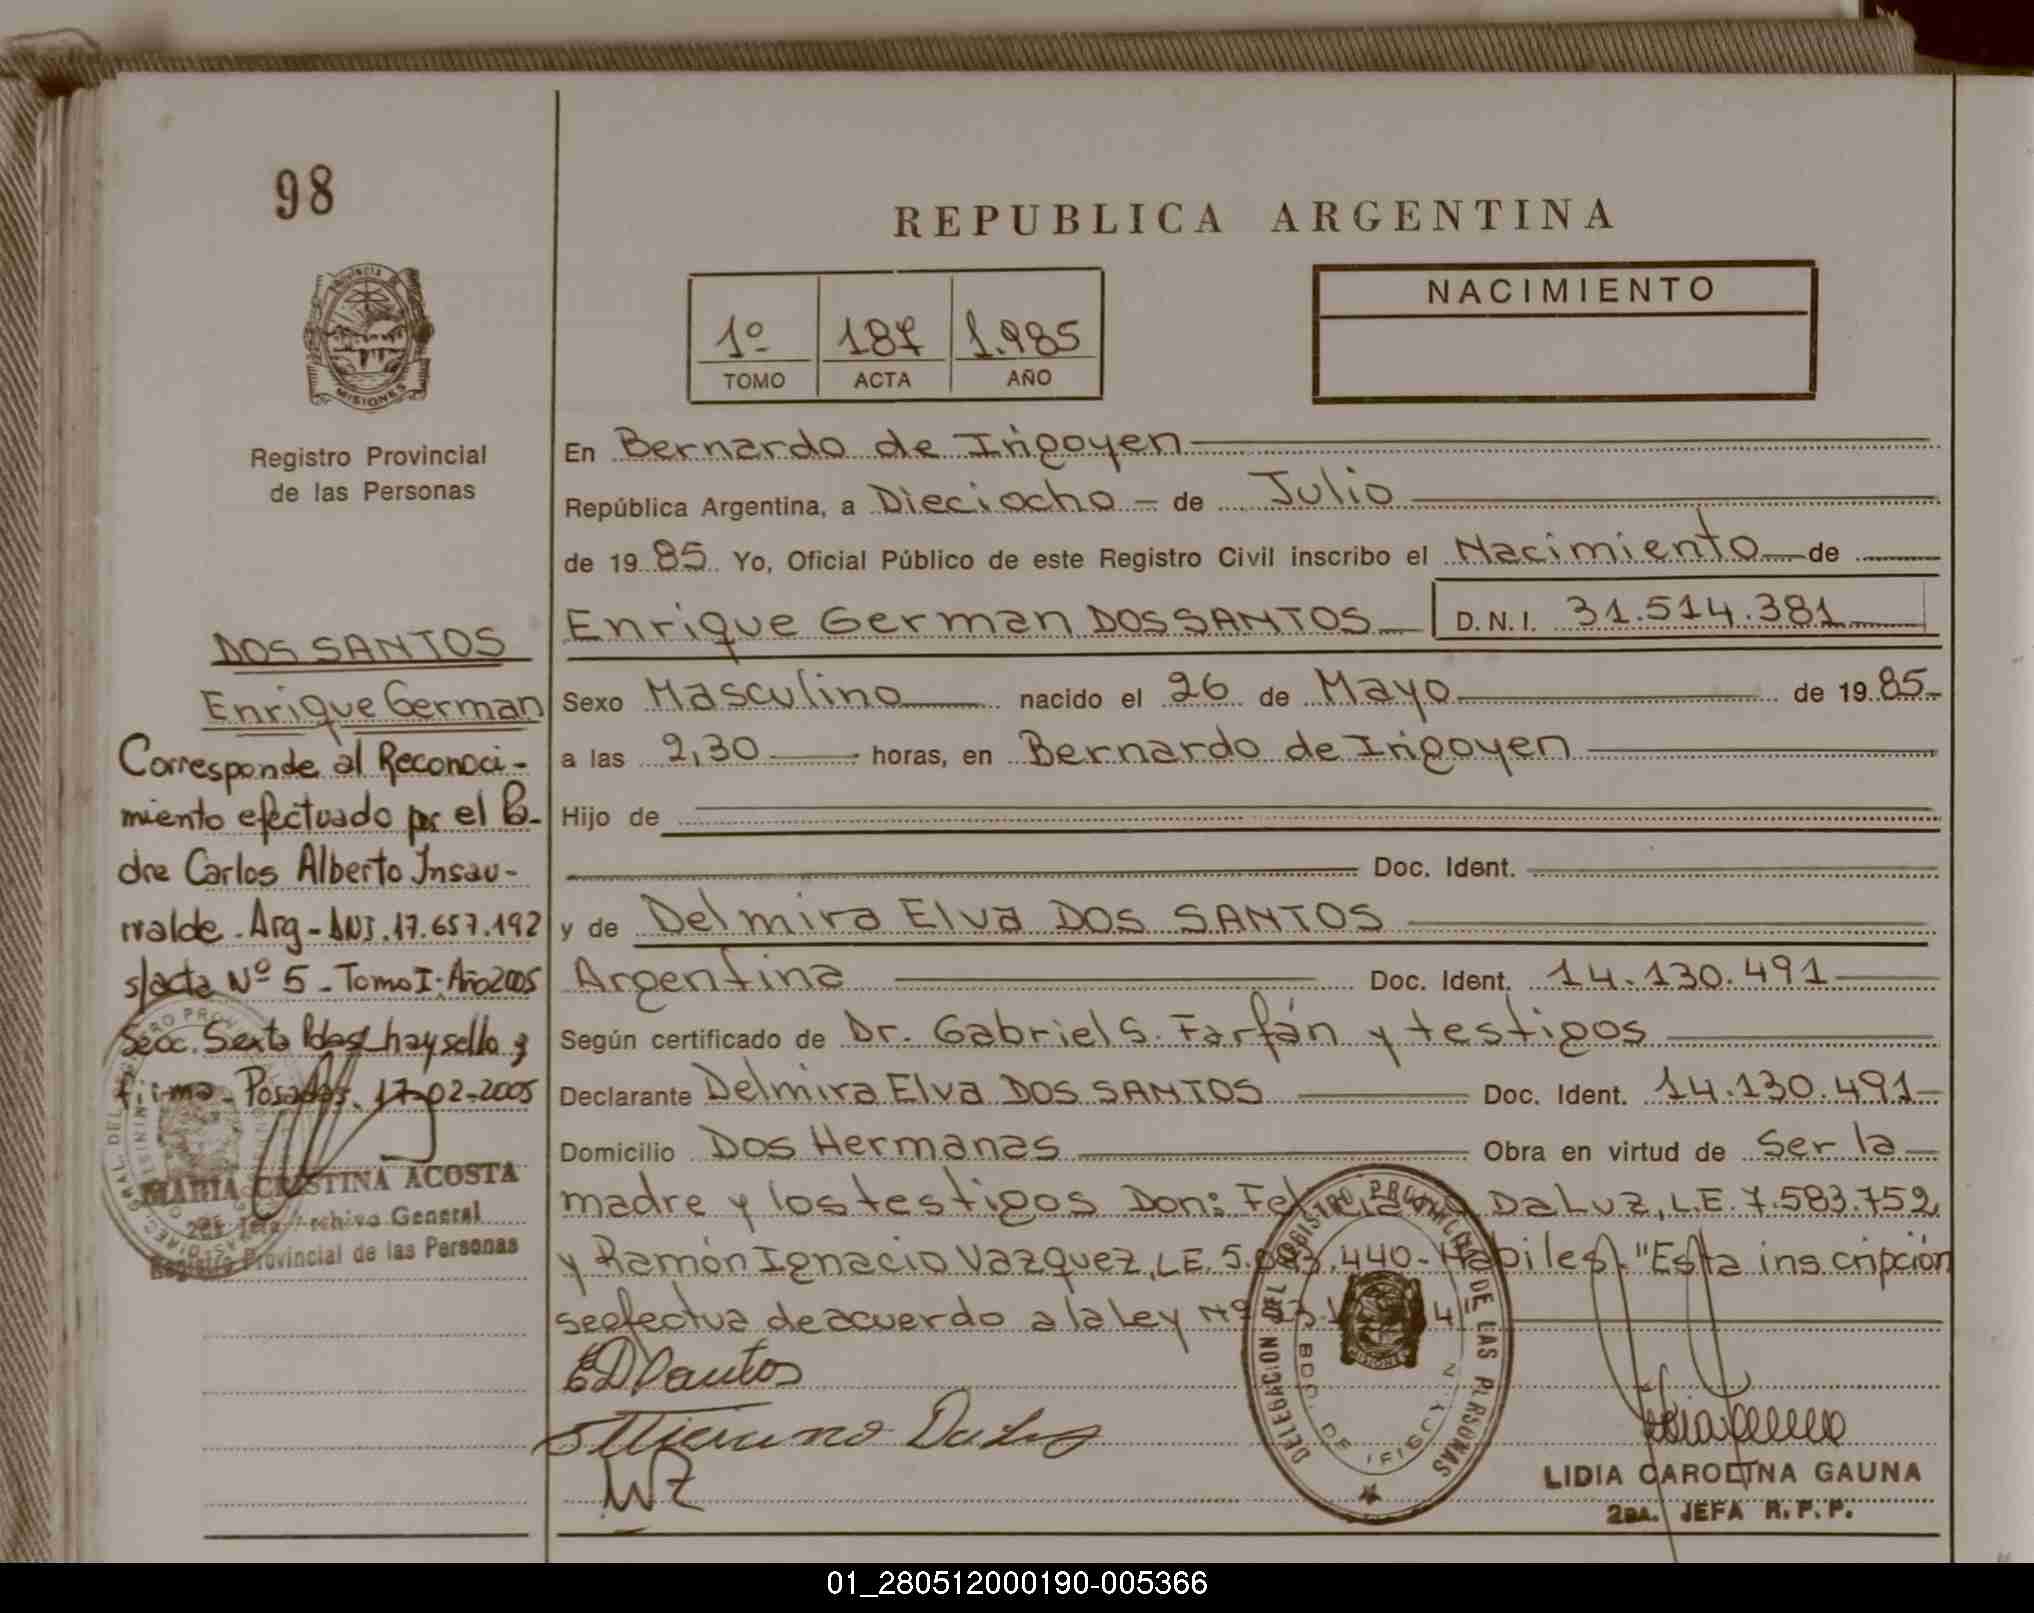 98
REPUBLICA ARGENTINA
Provincia
MISIONES
Registro Provincial
de las Personas
1º 187 1.985
TOMO ACTA AÑO
NACIMIENTO
En Bernardo de Irigoyen
República Argentina, a Dieciocho - de Julio
de 19 85 Yo, Oficial Público de este Registro Civil inscribo el Nacimiento de
Enrique German DOS SANTOS D.N.I. 31.514.381
Sexo Masculino nacido el 26 de Mayo de 19 85
a las 2,30 horas, en Bernardo de Irigoyen
Hijo de
Doc. Ident.
y de Delmira Elva DOS SANTOS
Argentina Doc. Ident. 14.130.491
Según certificado de Dr. Gabriel S. Farfán y testigos
Declarante Delmira Elva DOS SANTOS Doc. Ident. 14.130.491
Domicilio Dos Hermanas Obra en virtud de Ser la
madre y los testigos Don: DaLuz, L.E. 7.583.752
y Ramón Ignacio Vazquez, L.E. 440 - Habiles. "Esta inscripción
se efectua de acuerdo a la Ley Nº
DOS SANTOS
Enrique German
Corresponde al Reconoci-
miento efectuado por el Pa-
dre Carlos Alberto Insau-
rralde - Arg - DNI. 17.657.192
s/acta Nº 5 - Tomo I - Año 2005
Secc. Sexta Pdas hay sello y
firma - Posadas, 17-02-2005
MARIA CRISTINA ACOSTA
2da. Jefa Archivo General
Registro Provincial de las Personas
DELEGACION DEL REGISTRO PROVINCIAL DE LAS PERSONAS
BDO. DE IRIGOYEN
MISIONES
LIDIA CAROLINA GAUNA
2DA. JEFA R.P.P.
01_280512000190-005366